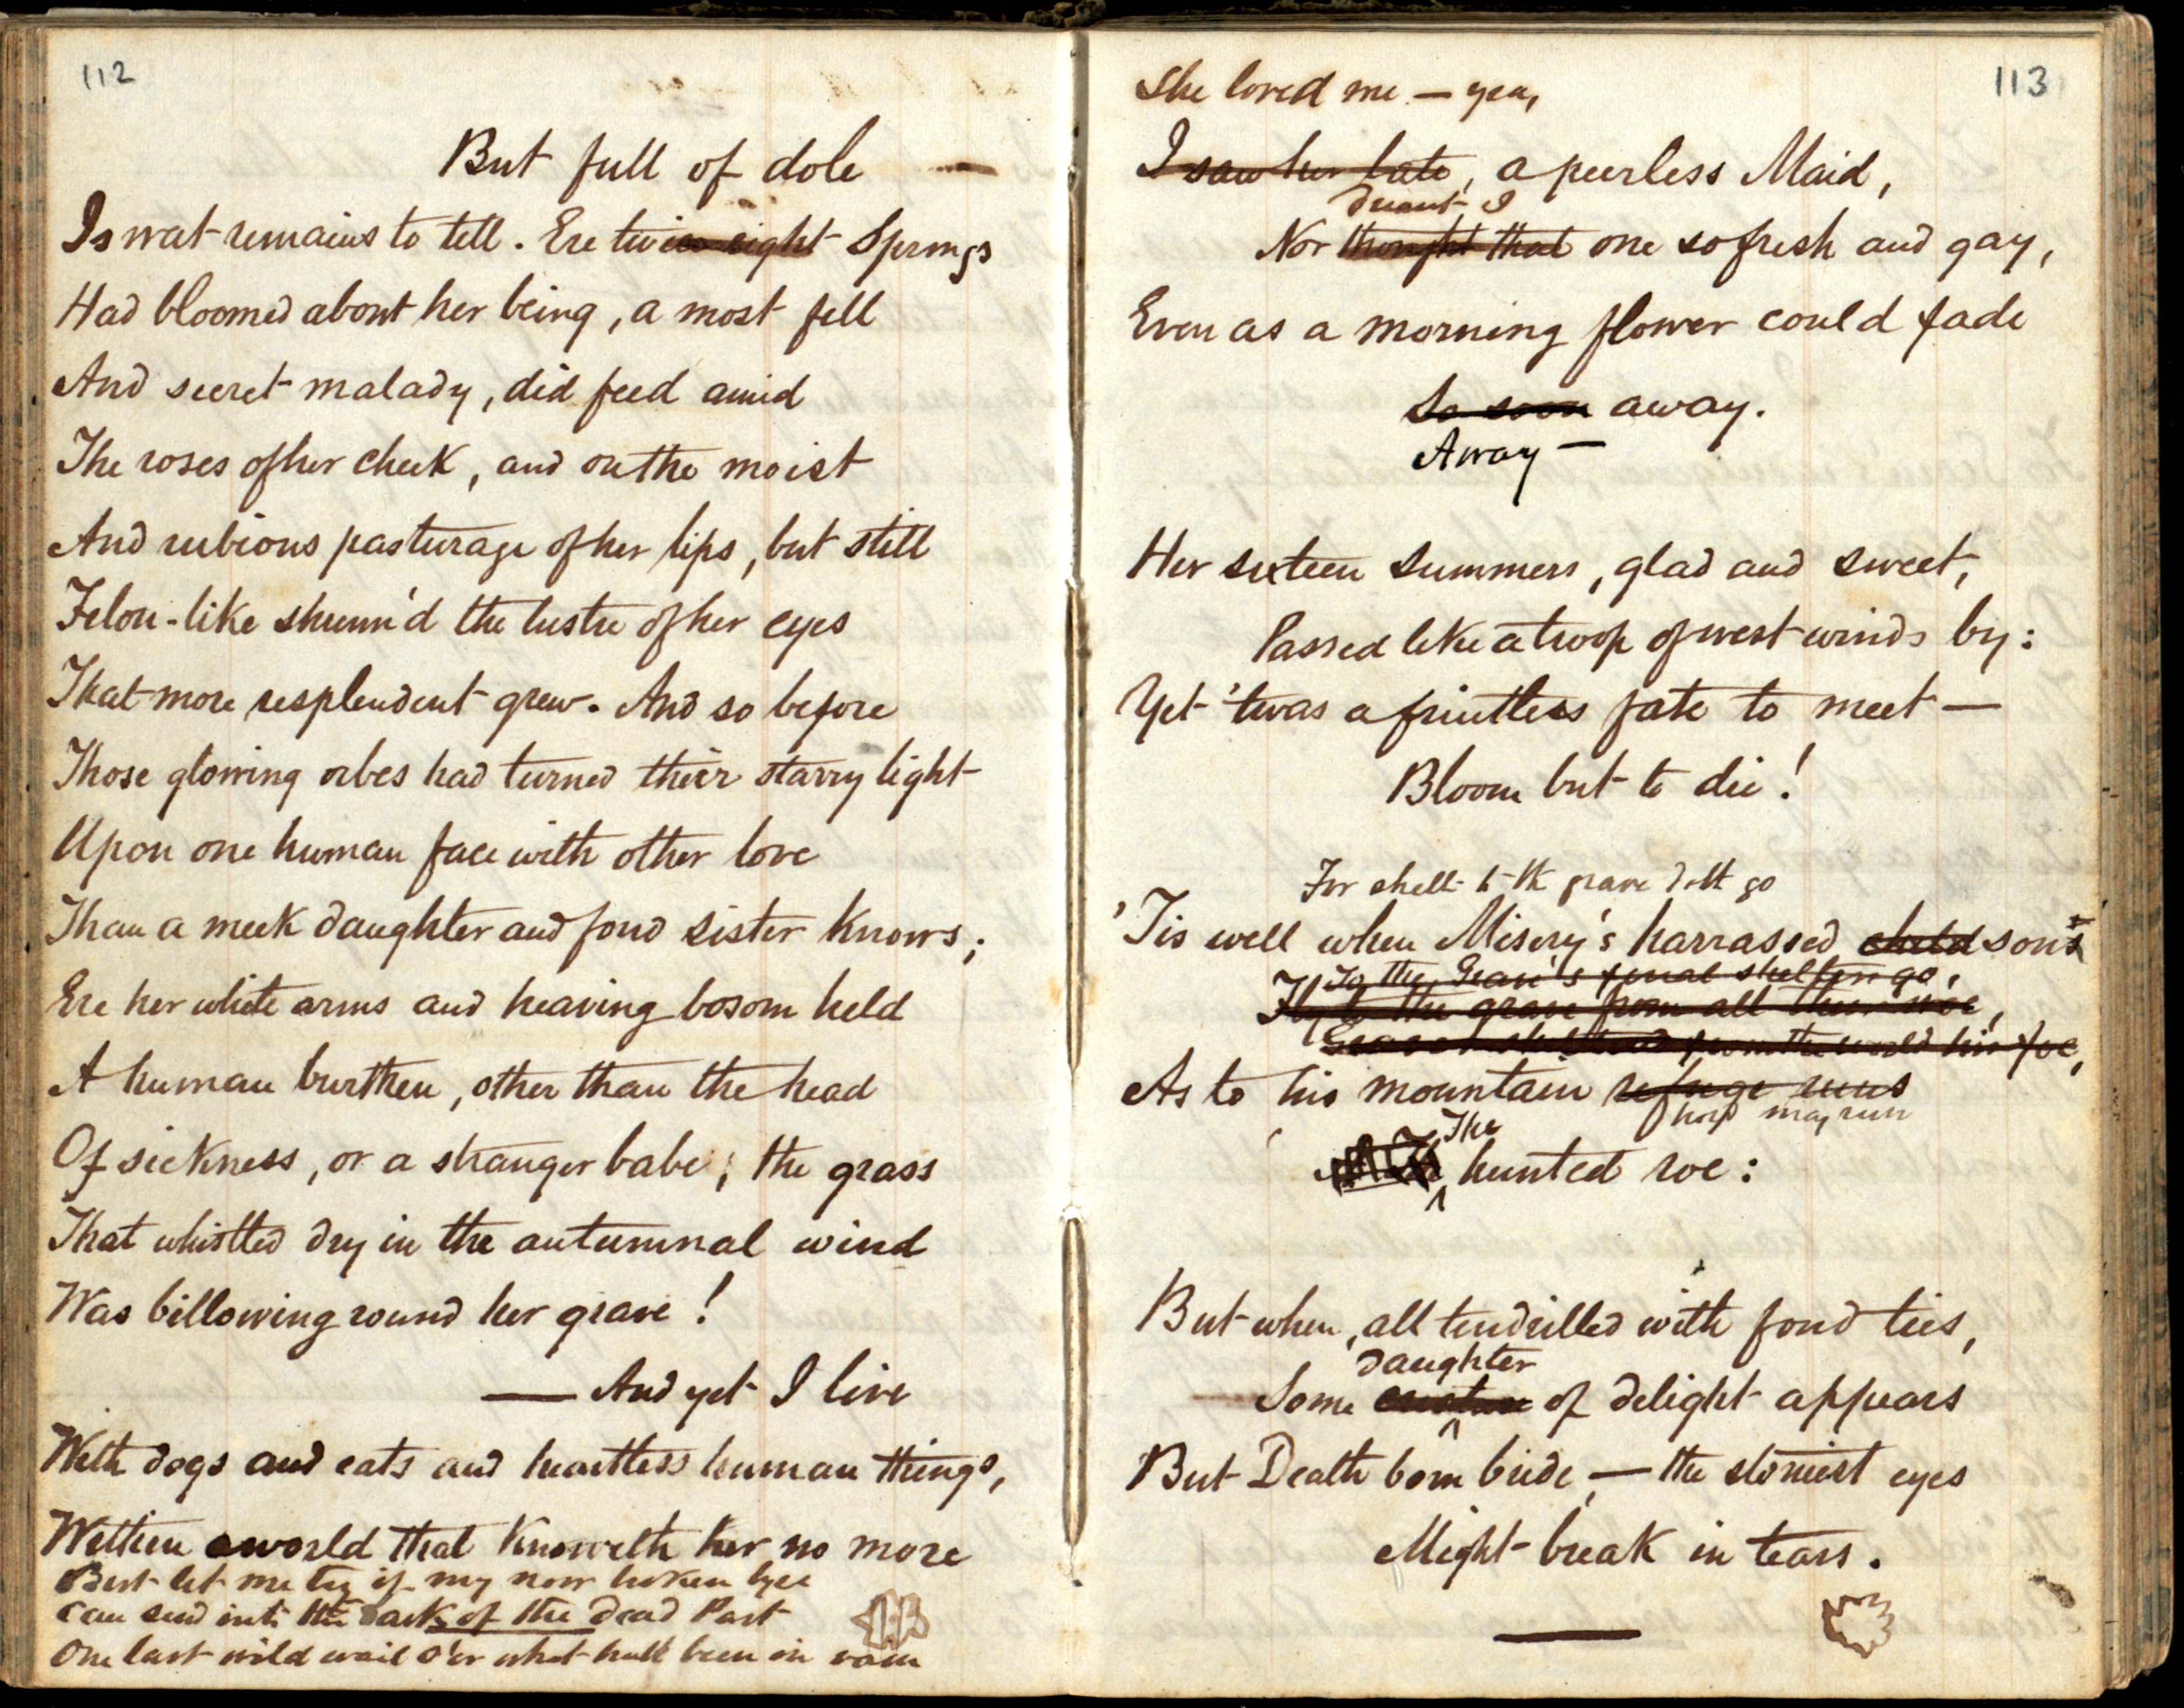 112
But full of dole —
Is wat remains to tell. Ere twice eight Springs
Had bloomed about her being, a most fell
And secret malady, did feed amid
The roses of her cheek, and on the moist
And rubious pasturage of her lips, but still
Felon-like shunn'd the lustre of her eyes
That more resplendent grew. And so before
Those glowing orbes had turned their starry light
Upon one human face with other love
Than a meek daughter and fond sister knows;
Ere her white arms and heaving bosom held
A human burthen, other than the head
Of sickness, or a stranger babe; the grass
That whistled dry in the autumnal wind
Was billowing round her grave!
— And yet I live
With dogs and cats and heartless human things,
Within a world that knoweth her no more
But let me try if my now broken lyre
can send into the dark of the dead Past
One last wild wail o'er what hath been in vain
113
She loved me — yea,
I saw her late, a peerless Maid,
dreamt I
Nor thought that one so fresh and gay,
Even as a morning flower could fade
So soon away.
Away —
Her sixteen summers, glad and sweet,
Passed like a troop of west winds by:
Yet 'twas a fruitless fate to meet —
Bloom but to die!
For shelt to th grave doth go
'Tis well when Misery's harrassed child sons
To the Grave's final shelter go,
Fly to the grave from all their woe,
from the world his foe,
As to his mountain refuge runs
hold may run
The
hunted roe:
But when, all tendrilled with fond ties,
daughter
Some creature of delight appears
But Death born bride, — the stoniest eyes
Might break in tears.